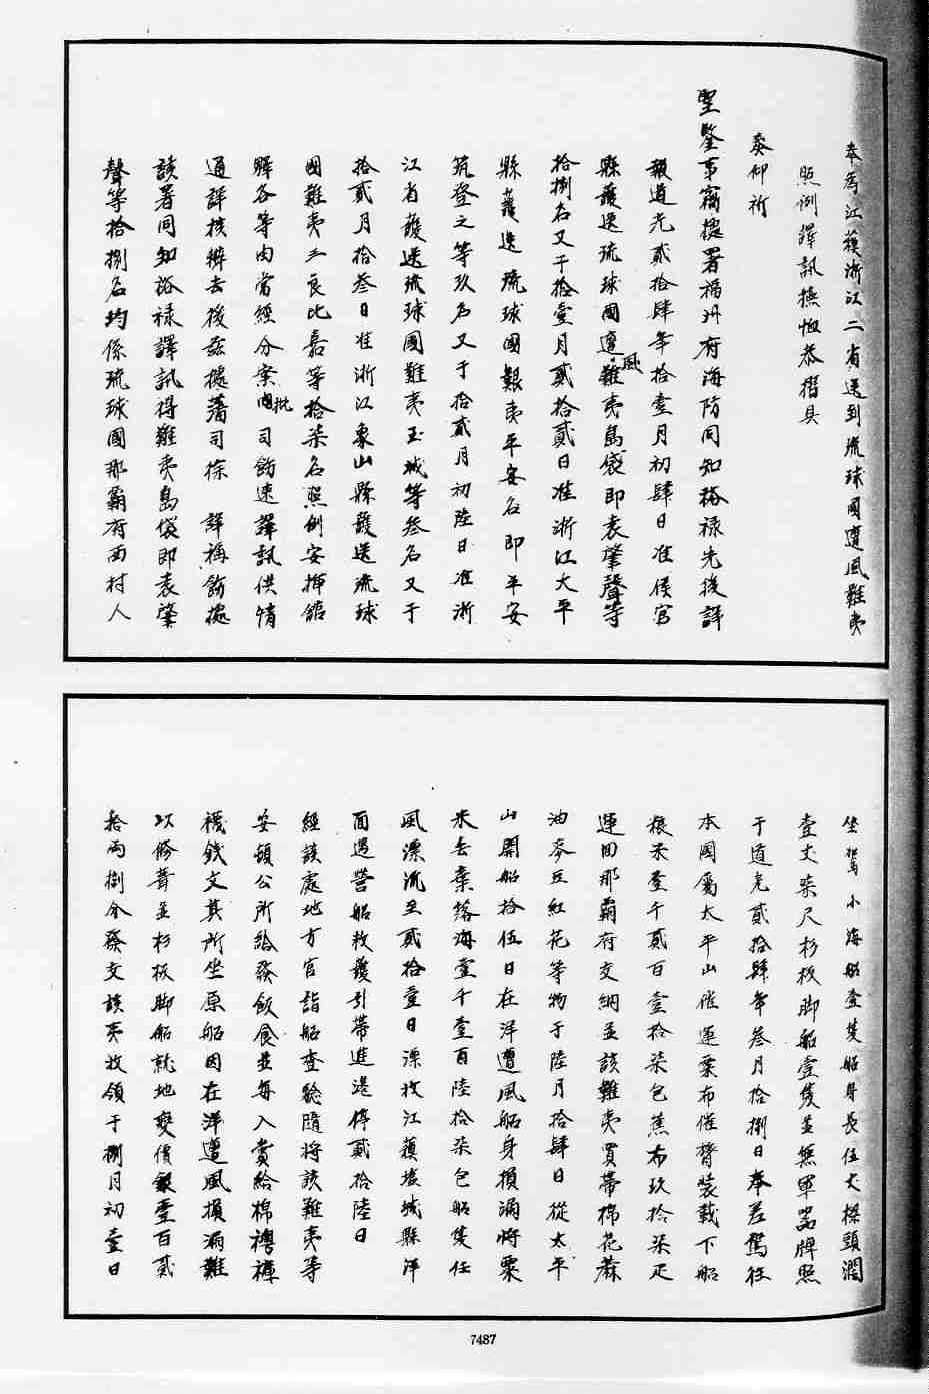 奏為江蘇浙江二省送到琉球國遭風難夷
照例譯訊撫恤恭摺具
奏仰祈
聖鑒事竊據署福州府海防同知裕祿先後詳
報道光貳拾肆年拾壹月初肆日准侯官
縣護送琉球國遭風難夷島袋即袁肇聲等
拾捌名又于拾壹月貳拾貳日准浙江太平
縣護送琉球國難夷平安名即平安
筑登之等玖名又于拾貳月初陸日准浙
江省護送琉球國難夷玉城等叁名又于
拾貳月拾叁日准浙江象山縣護送琉球
國難夷三良比嘉等拾柒名照例安揷館
驛各等由當經分案批司飭速譯訊供情
通詳核辦去後茲據藩司徐 詳稱飭據
該署同知裕祿譯訊得難夷島袋即袁肇
聲等拾捌名均係琉球國那霸府西村人
坐駕小海船壹隻船身長伍丈樑頭濶
壹丈柒尺杉板脚船壹隻並無軍器牌照
于道光貳拾肆年叁月拾捌日奉差駕往
本國屬太平山催運粟布催齊裝載下船
根米壹千貳百壹拾柒包蕉布玖拾柒疋
運回那霸府交納並該難夷買帶棉花蔴
油麥豆紅花等物于陸月拾肆日從太平
山開船拾伍日在洋遭風船身損漏將粟
米丟棄落海壹千壹百陸拾柒包船隻任
風漂流至貳拾壹日漂收江蘇塩城縣洋
面遇營船救護引帶進港停貳拾陸日
經該處地方官詣船查驗隨將該難夷等
安頓公所給發飯食並每人賞給棉襖褲
襪錢文其所坐原船因在洋遭風損漏難
以修葺並杉板脚船就地變價銀壹百貳
拾兩捌分發交該夷收領于捌月初壹日
7487